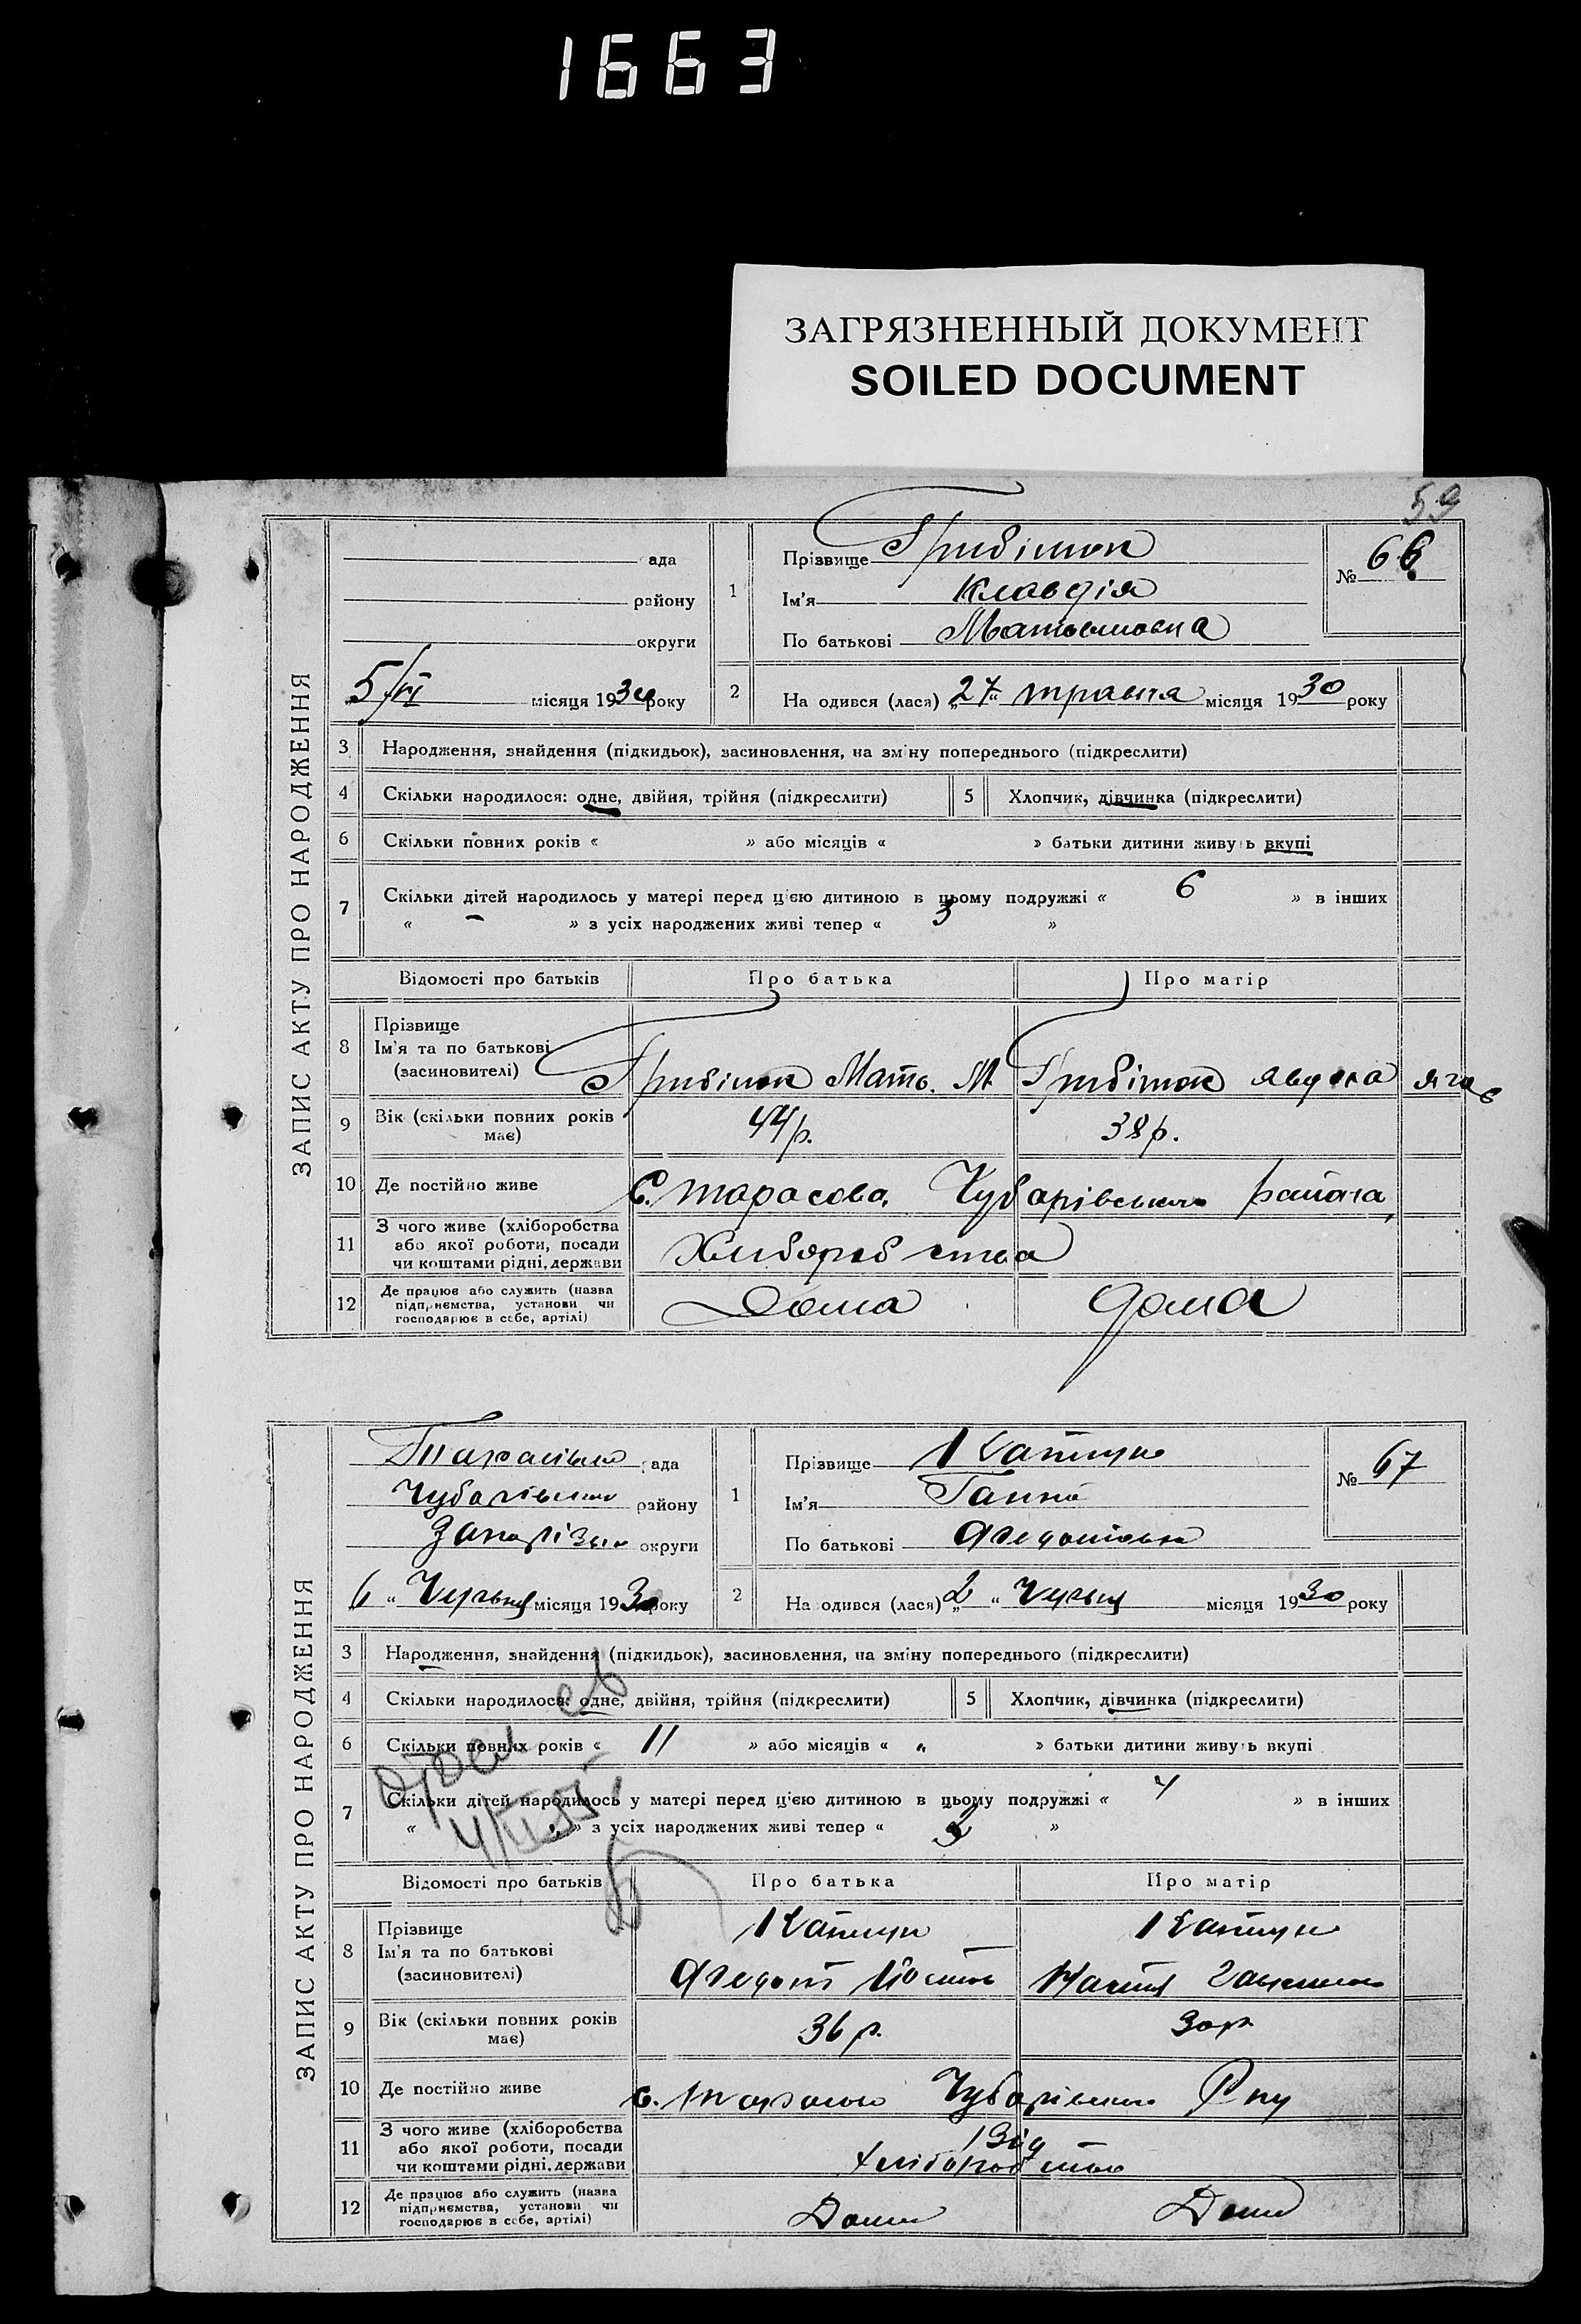 1663
ЗАГРЯЗНЕННЫЙ ДОКУМЕНТ
SOILED DOCUMENT
59
ЗАПИС АКТУ ПРО НАРОДЖЕННЯ
ада
району
округи
5/VI місяця 1930 року
1 Прізвище Грибінюк
Ім'я Клавдія
По батькові Матвіївна
№ 66
2 На одився (лася) „27“ травня місяця 1930 року
3 Народження, знайдення (підкидьок), засиновлення, на зміну попереднього (підкреслити)
4 Скільки народилося: одне, двійня, трійня (підкреслити) 5 Хлопчик, дівчинка (підкреслити)
6 Скільки повних років « » або місяців « » батьки дитини живуь вкупі
7 Скільки дітей народилось у матері перед цією дитиною в цьому подружжі « 6 » в інших
« – » з усіх народжених живі тепер « 3 »
Відомості про батьків Про батька Про матір
8 Прізвище
Ім'я та по батькові
(засиновителі)
Мать. М
9 Вік (скільки повних років має) 44 р. 38 р.
10 Де постійно живе С. Тарасовка, Чубарівського району
11 З чого живе (хліборобства або якої роботи, посади чи коштами рідні, держави Хліборобства
12 Де працює або служить (назва підприємства, установи чи господарює в себе, артілі) Дома Дома
ЗАПИС АКТУ ПРО НАРОДЖЕННЯ
Тарасівка ада
Чубарівського району
Запорізьк округи
„6“ Червня місяця 1930 року
1 Прізвище Квітчун
Ім'я Ганна
По батькові Федотівна
№ 67
2 На одився (лася) „2“ Червня місяця 1930 року
3 Народження, знайдення (підкидьок), засиновлення, на зміну попереднього (підкреслити)
4 Скільки народилося: одне, двійня, трійня (підкреслити) 5 Хлопчик, дівчинка (підкреслити)
6 Скільки повних років « 11 » або місяців « „ » батьки дитини живуь вкупі
7 Скільки дітей народилось у матері перед цією дитиною в цьому подружжі « 4 » в інших
« » з усіх народжених живі тепер « 3 »
Відомості про батьків Про батька Про матір
8 Прізвище
Ім'я та по батькові
(засиновителі)
9 Вік (скільки повних років має) 36 р. 30 р.
10 Де постійно живе с. Тарасівка Чубарівського Р-ну
11 З чого живе (хліборобства або якої роботи, посади чи коштами рідні, держави Від хліборобства
12 Де працює або служить (назва підприємства, установи чи господарює в себе, артілі) Дома Дома